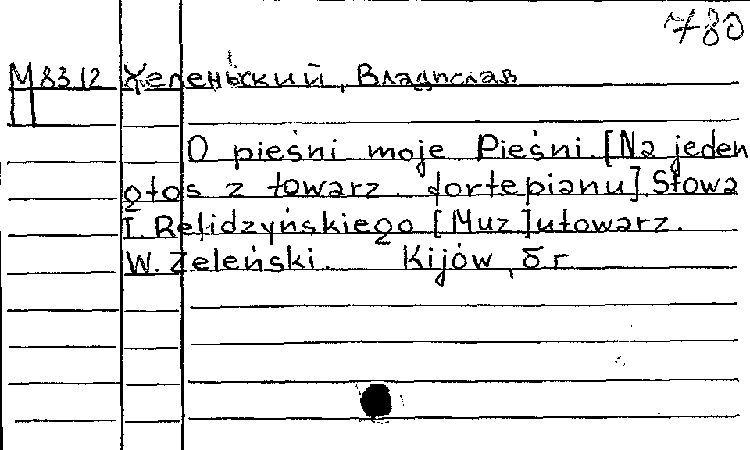 780
М 8312 Желеньский, Владислав
O pieśni moje Pieśni. [Na jeden
głos z towarz. fortepianu]. Słowa
I. Relidzyńskiego [Muz] utowarz.
W. Zeleński. Kijów, б г